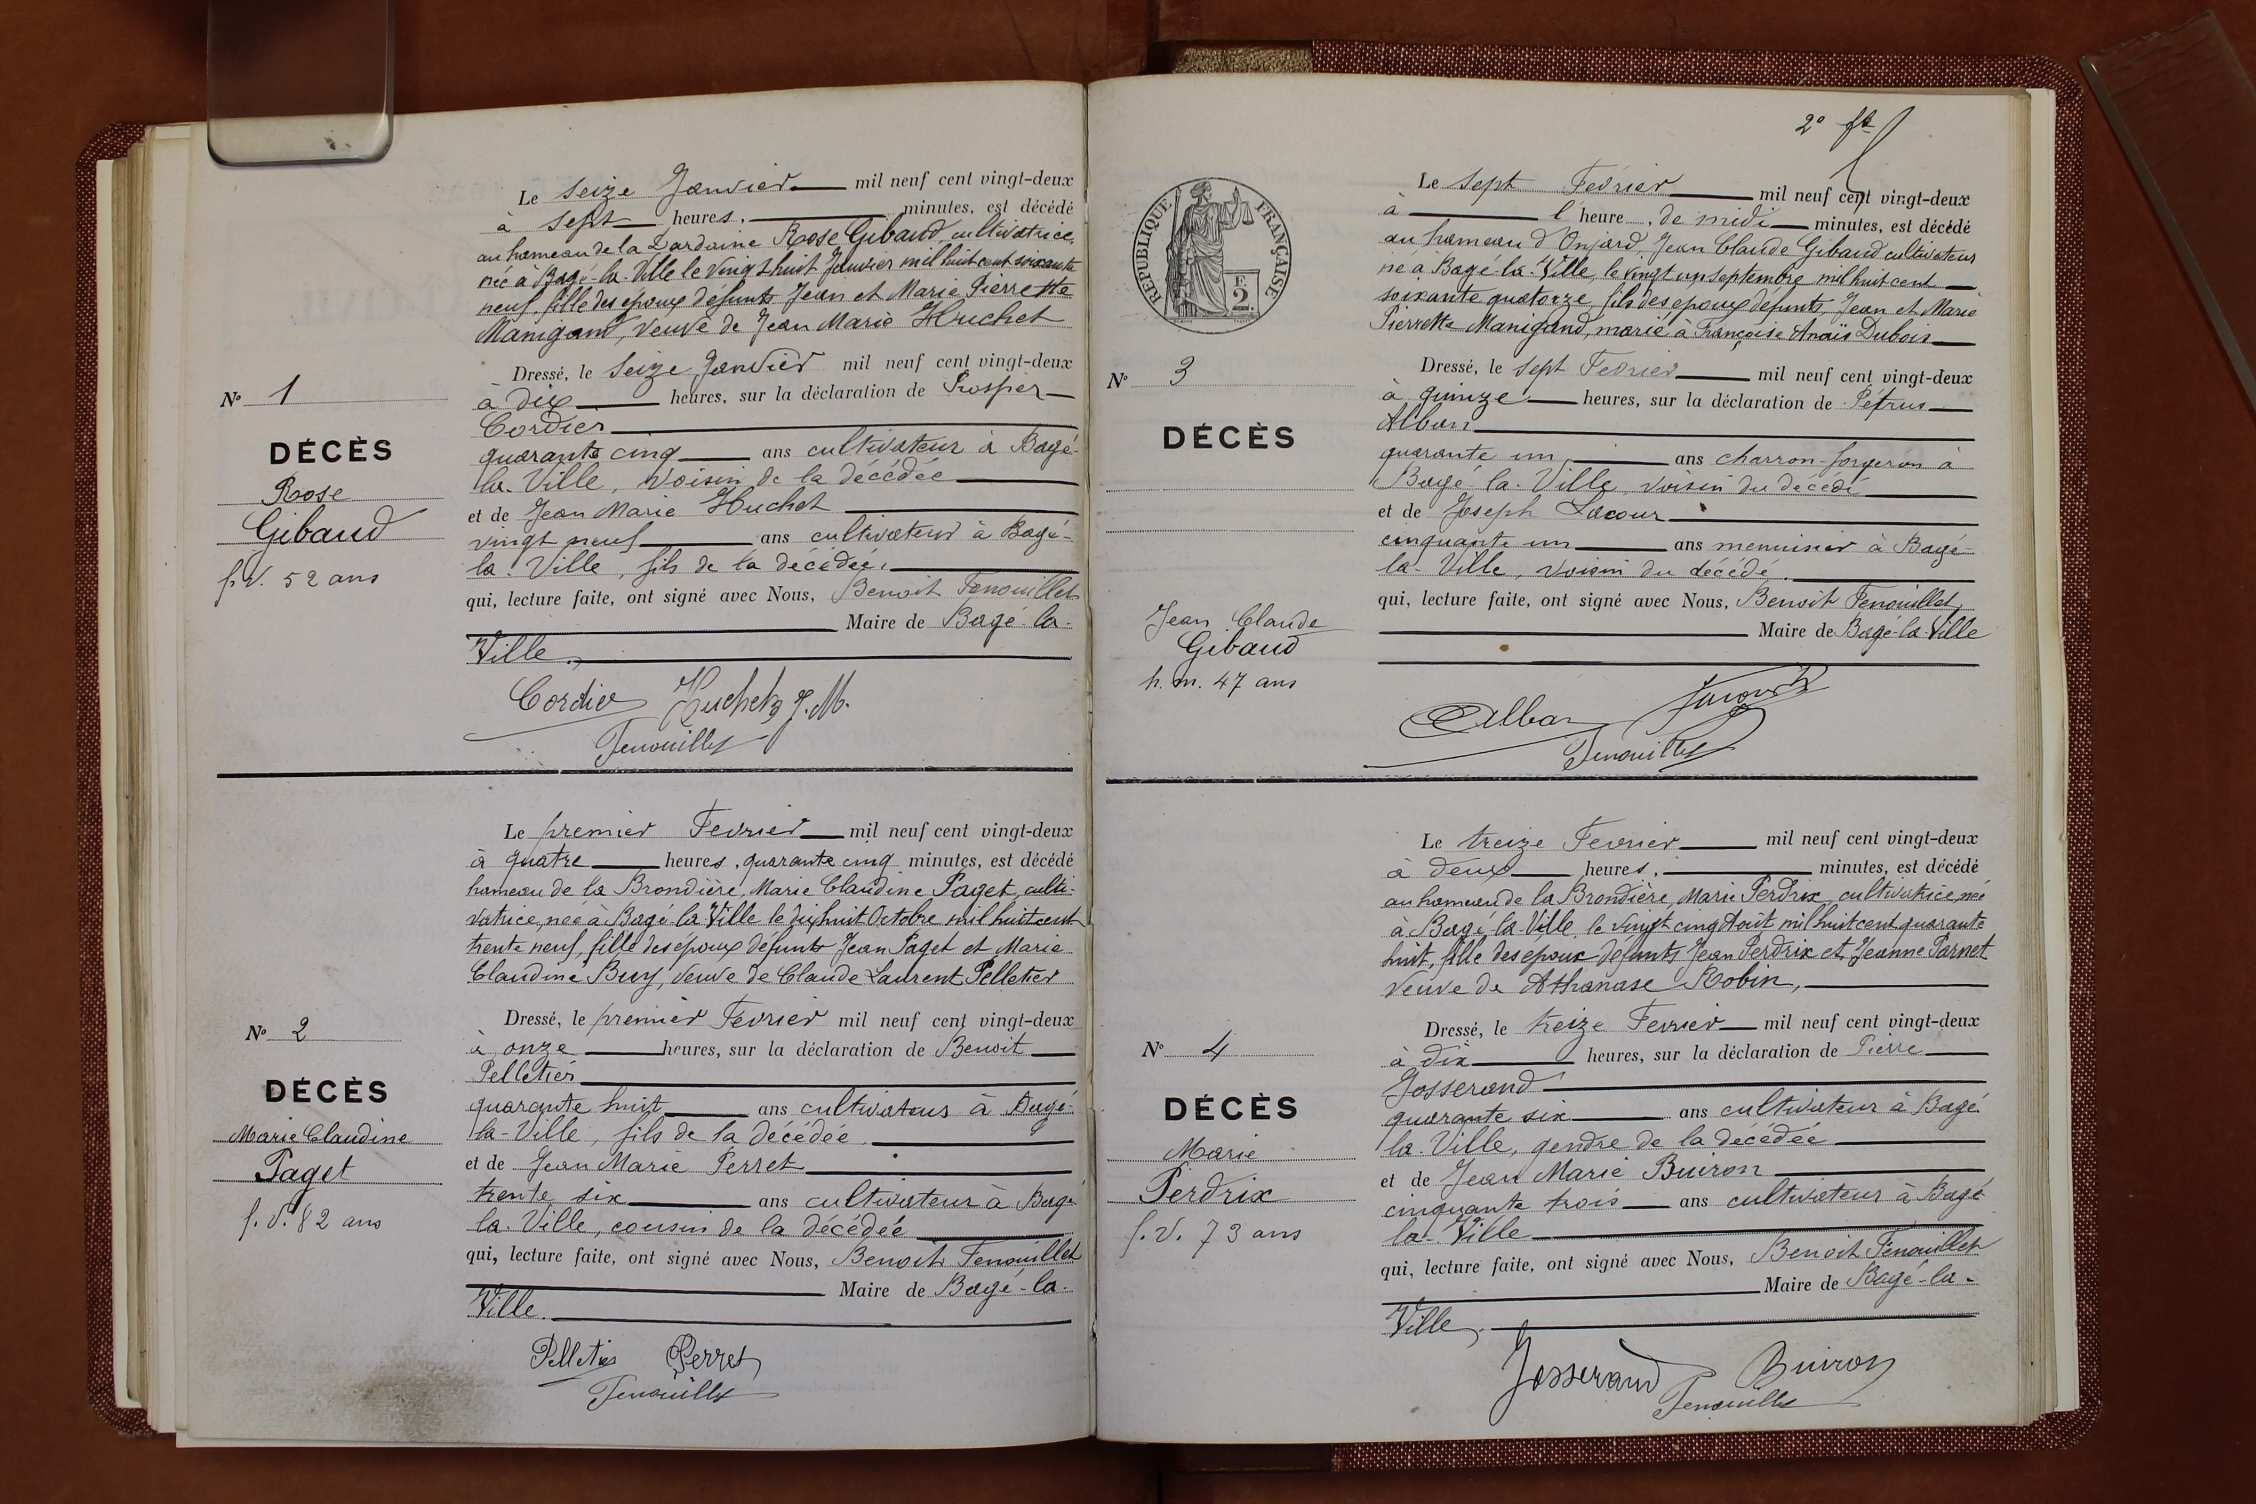 Le seize Janvier mil neuf cent vingt-deux
à sept heures, minutes, est décédé
au hameau de la Rose Gibaud cultivatrice,
née à Bagé-la-Ville le vingt huit Janvier mil huit cent soixante
neuf, fille des époux défunts Jean et Marie Pierrette
Manigand, veuve de Jean Marie Huchet
Dressé, le seize Janvier mil neuf cent vingt-deux
à dix heures, sur la déclaration de Prosper
Cordier
quarante cinq ans cultivateur à Bagé-
la-Ville, voisin de la décédée
et de Jean Marie Huchet
vingt neuf ans cultivateur à Bagé-
la-Ville, fils de la décédée,
qui, lecture faite, ont signé avec Nous, Benoit Fenouillet
Maire de Bagé-la-
Ville.
Cordier Huchet J. M.
Fenouillet
No 1
DÉCÈS
Rose
Gibaud
f. v. 52 ans
Le premier Fevrier mil neuf cent vingt-deux
à quatre heures, quarante cinq minutes, est décédé
hameau de la Brondière, Marie Claudine Paget, culti-
vatrice, née à Bagé-la-Ville le dix huit Octobre mil huit cent
trente neuf, fille des époux défunts Jean Paget et Marie
Claudine Buy, veuve de Claude Laurent Pelletier
Dressé, le premier Fevrier mil neuf cent vingt-deux
à onze heures, sur la déclaration de Benoit
Pelletier
quarante huit ans cultivateur à Bagé-
la-Ville, fils de la décédée
et de Jean Marie Perret
trente six ans cultivateur à Bagé
la-Ville, cousin de la décédée
qui, lecture faite, ont signé avec Nous, Benoit Fenouillet
Maire de Bagé-la-
Ville.
Pelletier Perret
Fenouillet
No 2
DÉCÈS
Marie Claudine
Paget
f. v. 82 ans
2e ft
Le sept Fevrier mil neuf cent vingt-deux
à l' heure, de midi minutes, est décédé
au hameau d'Onjard, Jean Claude Gibaud cultivateur
né à Bagé-la-Ville, le vingt un septembre mil huit cent
soixante quatorze, fils des époux défunts, Jean et Marie
Pierrette Manigand, marié à Françoise Anaïs Dubois
Dressé, le sept Fevrier mil neuf cent vingt-deux
à quinze heures, sur la déclaration de Pétrus
Alban
quarante un ans charron-forgeron à
Bagé-la-Ville, voisin du décédé
et de Joseph Lacour
cinquante un ans menuisier à Bagé-
la-Ville, voisin du décédé.
qui, lecture faite, ont signé avec Nous, Benoit Fenouillet
Maire de Bagé-la-Ville
Alban
Fenouillet
RÉPUBLIQUE FRANÇAISE
F.
2.
No 3
DÉCÈS
Jean Claude
Gibaud
h. m. 47 ans
Le treize Fevrier mil neuf cent vingt-deux
à deux heures, minutes, est décédé
au hameau de la Brondière, Marie Perdrix cultivatrice, née
à Bagé-la-Ville, le vingt cinq Août mil huit cent quarante
huit, fille des époux défunts Jean Perdrix et Jeanne Parnet
veuve de Athanase Robin,
Dressé, le treize Fevrier mil neuf cent vingt-deux
à dix heures, sur la déclaration de Pierre
Josserand
quarante six ans cultivateur à Bagé
la-Ville, gendre de la décédée
et de Jean Marie Buiron
cinquante trois ans cultivateur à Bagé
la-Ville
qui, lecture faite, ont signé avec Nous, Benoit Fenouillet
Maire de Bagé-la-
Ville.
Josserand Buiron
Fenouillet
No 4
DÉCÈS
Marie
Perdrix
f. v. 73 ans